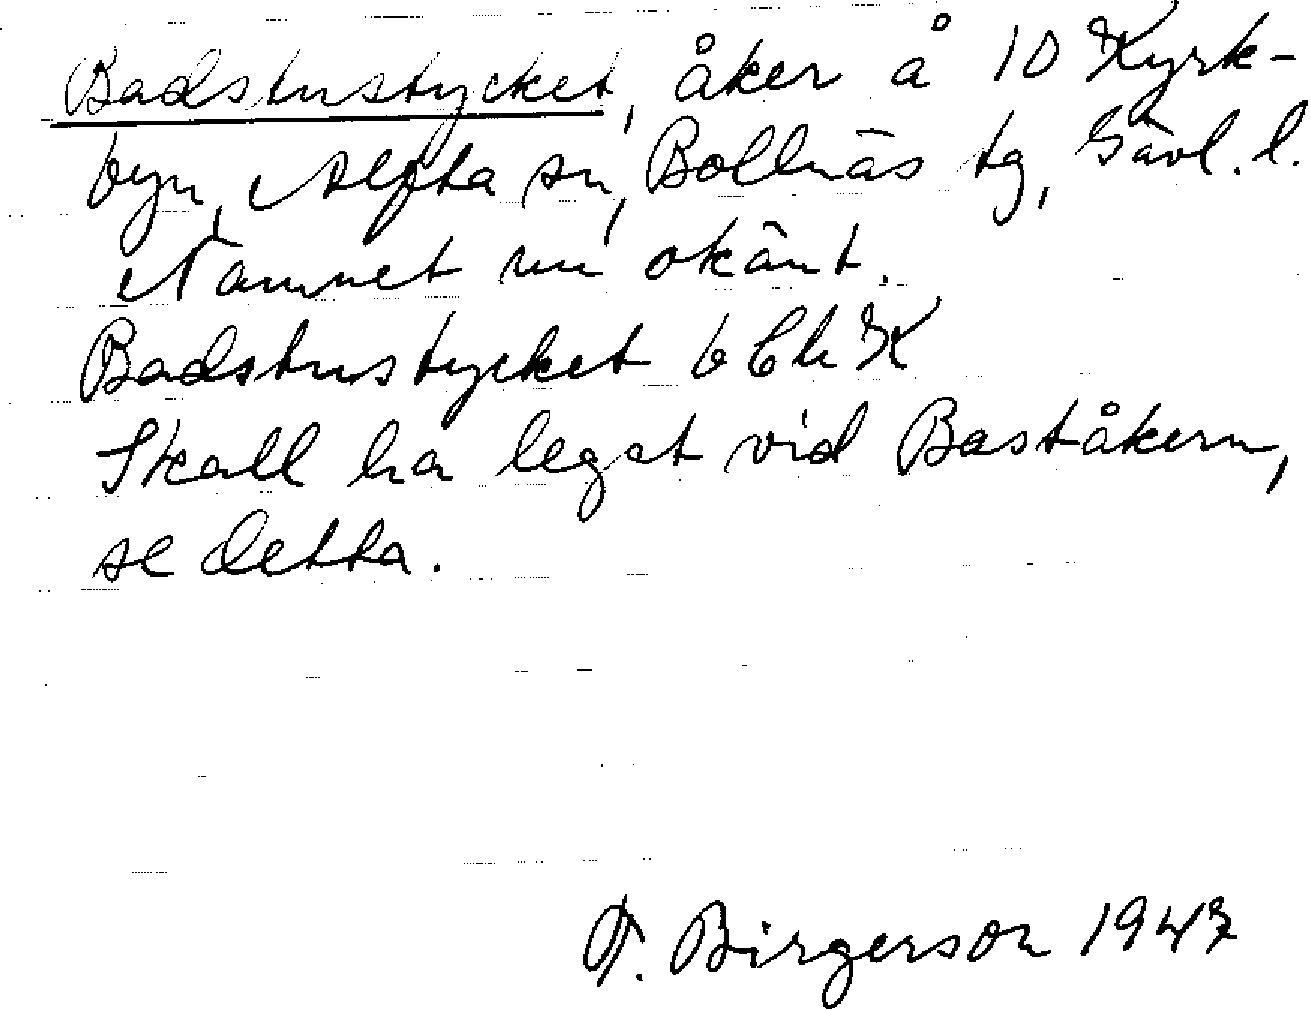 Badstustycket, åker å 10 Kyrk-
byn, Alfta sn, Bollnäs tg, Gävl. l.
Namnet nu okänt.
Badstustycket b Ch K
Skall ha legat vid Baståkern,
se detta.
F. Birgerson 1947